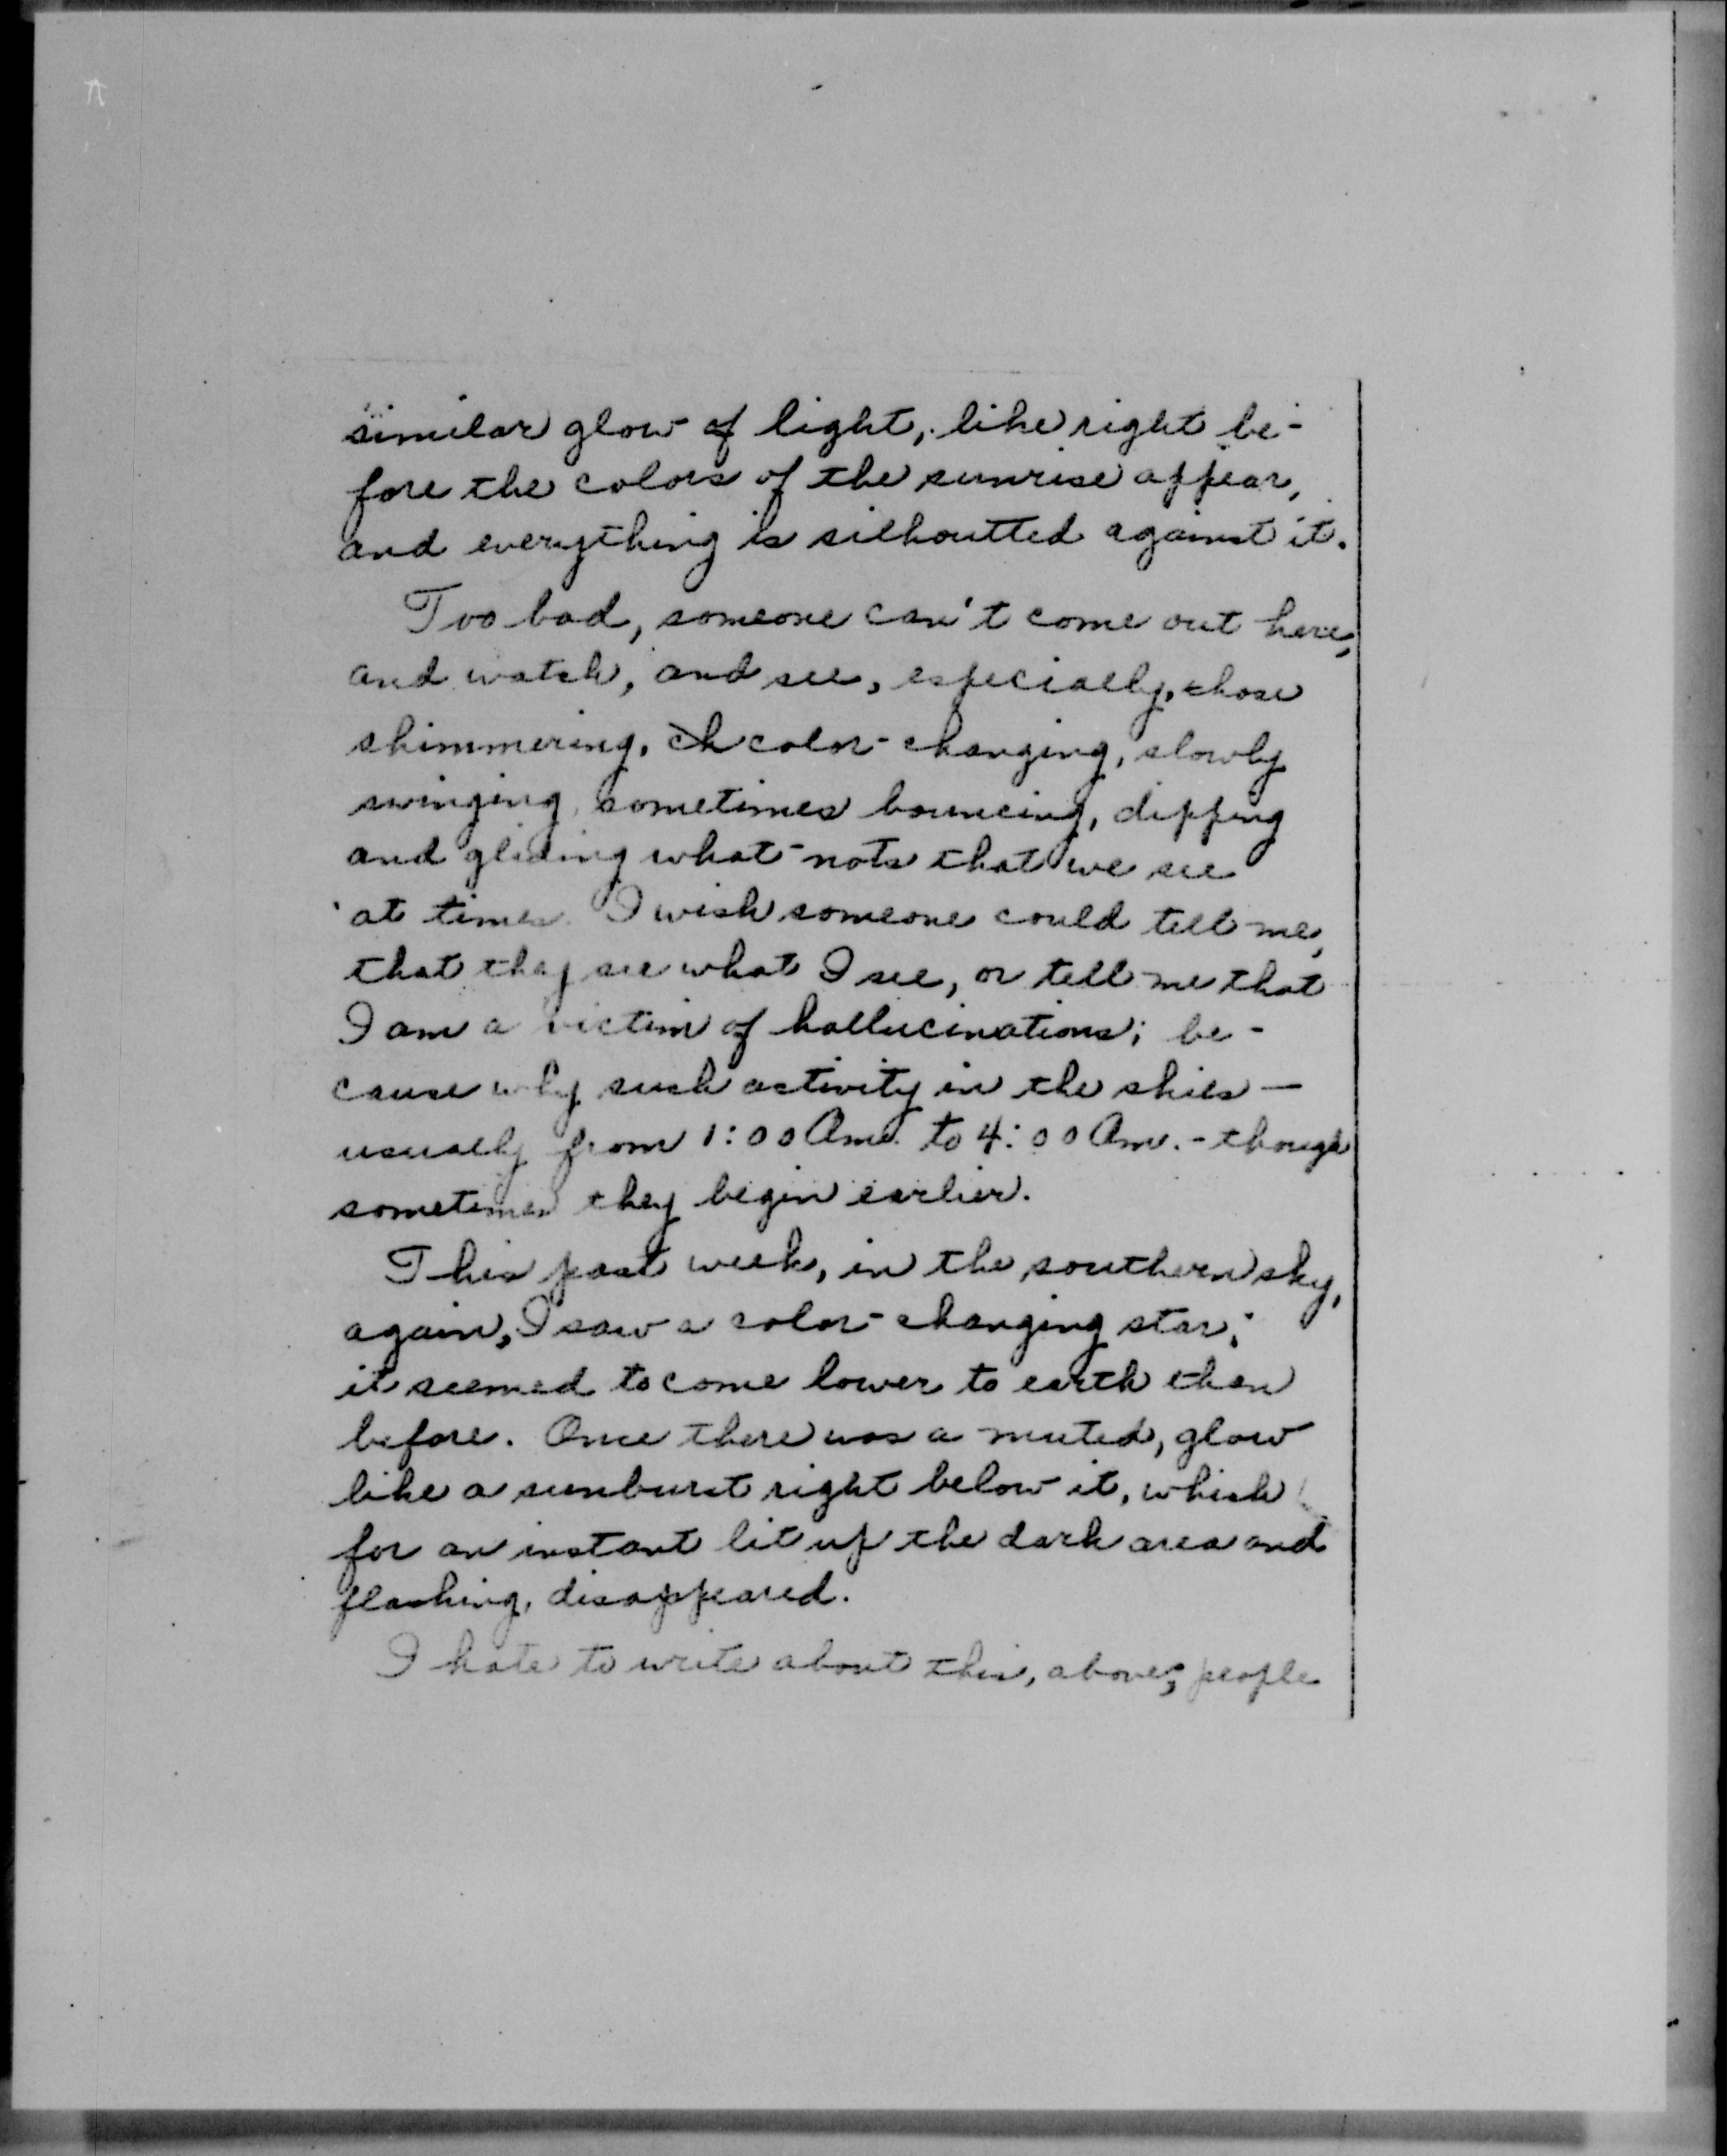 similar glow of light, like right be-
fore the colors of the sunrise appear,
and everything is silhoutted against it.
Too bad, someone can't come out here,
and watch, and see, especially, those
shimmering, ch color-changing, slowly
swinging, sometimes bouncing, dipping
and gliding what-nots that we see
at times. I wish someone could tell me,
that they see what I see, or tell me that
I am a victim of hallucinations; be-
cause why such activity in the skies —
usually from 1:00 Am. to 4:00 Am. - though
sometimes they begin earlier.
This past week, in the southern sky,
again, I saw a color-changing star;
it seemed to come lower to earth than
before. Once there was a muted, glow
like a sunburst right below it, which
for an instant lit up the dark area and
flashing, disappeared.
I hate to write about this, above; people